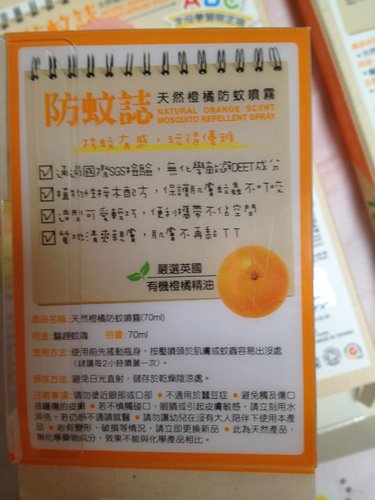 ABC
防蚊誌
天然橙橘防蚊噴霧
NATURAL ORANGE SCENT
MOSQUITO REPELLENT SPRAY
防蚊有感 玩得優雅
通過國際SGS檢驗，無化學敵避DEET成分
植物性草本配方，保護肌膚蚊蟲不叮咬
造型可愛輕巧，便利攜帶不佔空間
質地清爽親膚，肌膚不再黏TT
嚴選英國
有機橙橘精油
產品名稱:天然橙橘防蚊噴霧(70ml)
用途:驅趕蚊蟲 容量:70ml
使用方法:使用前先搖動瓶身，按壓噴頭於肌膚或蚊蟲容易出沒處
(建議每2小時噴灑一次)。
保存方法:避免日光直射，儲存於乾燥陰涼處。
注意事項:請勿塗近眼部或口部 ● 不適用於蠶豆症 ● 避免觸及傷口
或曬傷的皮膚 ● 若不慎觸碰口、眼睛或引起皮膚敏感，請立刻用水
沖洗，若仍感不適請就醫 ● 請勿讓幼兒在沒有大人陪伴下使用本產
品 ● 若有變形、破損等情況，請立即更換新品 ● 此為天然產品，
無化學藥物成分，效果不能與化學產品相比。